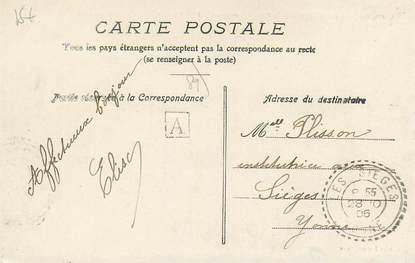 CARTE POSTALE
Tous les pays étrangers n'acceptent pas la correspondance au recto
(se renseigner à la poste)
Partie réservée à la Correspondance
Adresse du destinataire
A
Affectueux bonjour
Elise
Mlle Plisson
institutrice aux
Sièges
Yonne
LES SIEGES
28 10
06